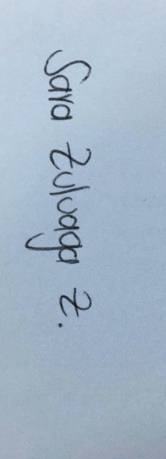 Sara Zuluaga Z.